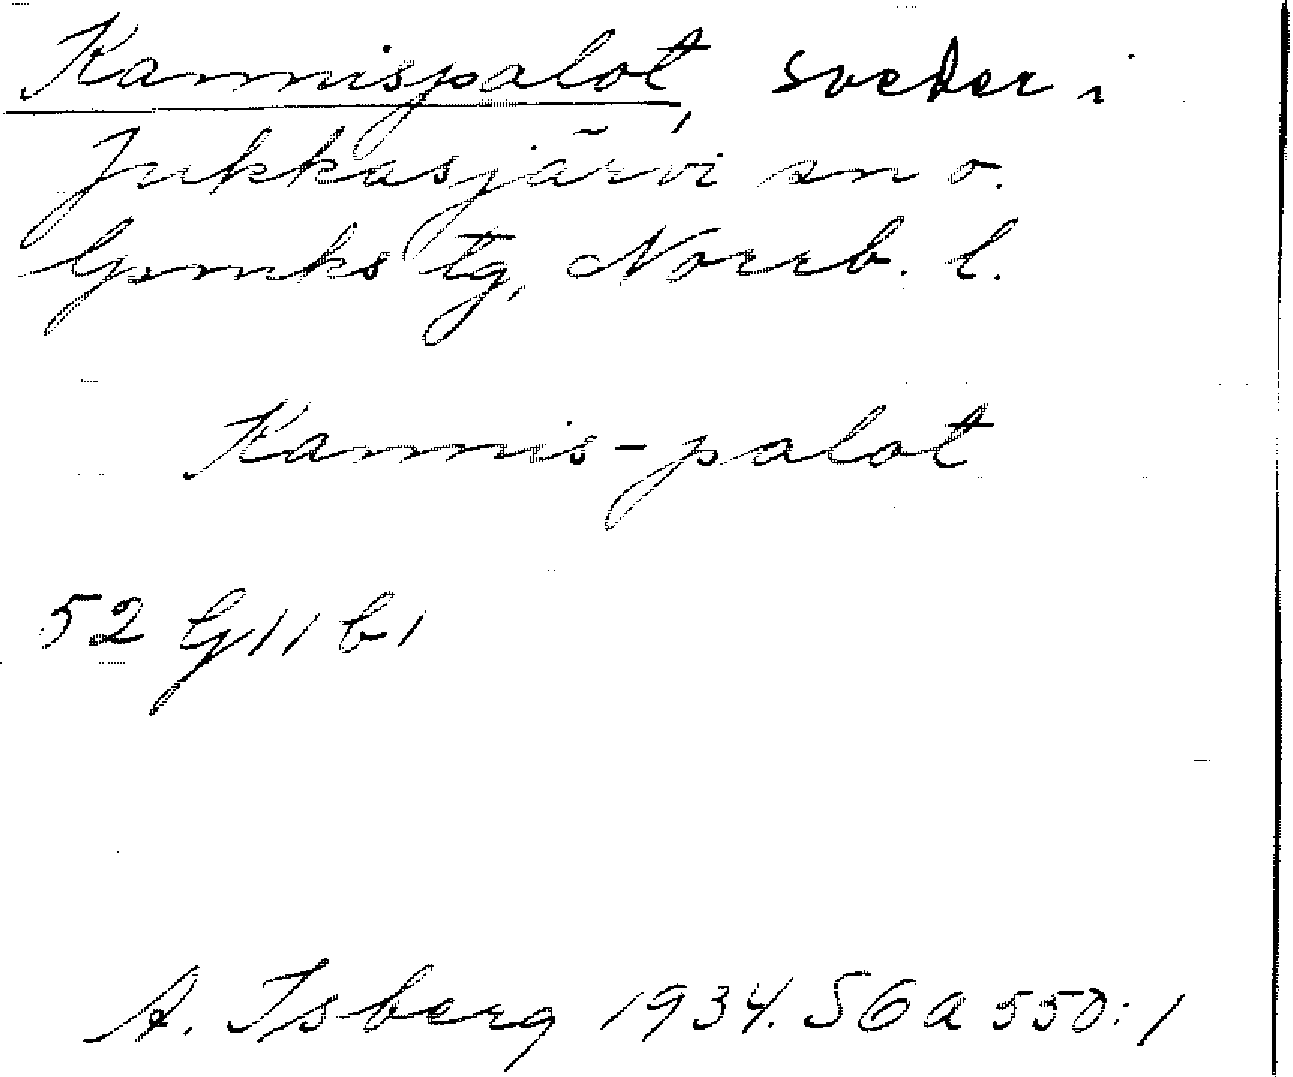 Kannispalot, sveder i
Jukkasjärvi sn o.
Gmks tg, Norrb. l.
Kannis-palot
52 G 11 b 1
A. Isberg 1934. SGA 550:1